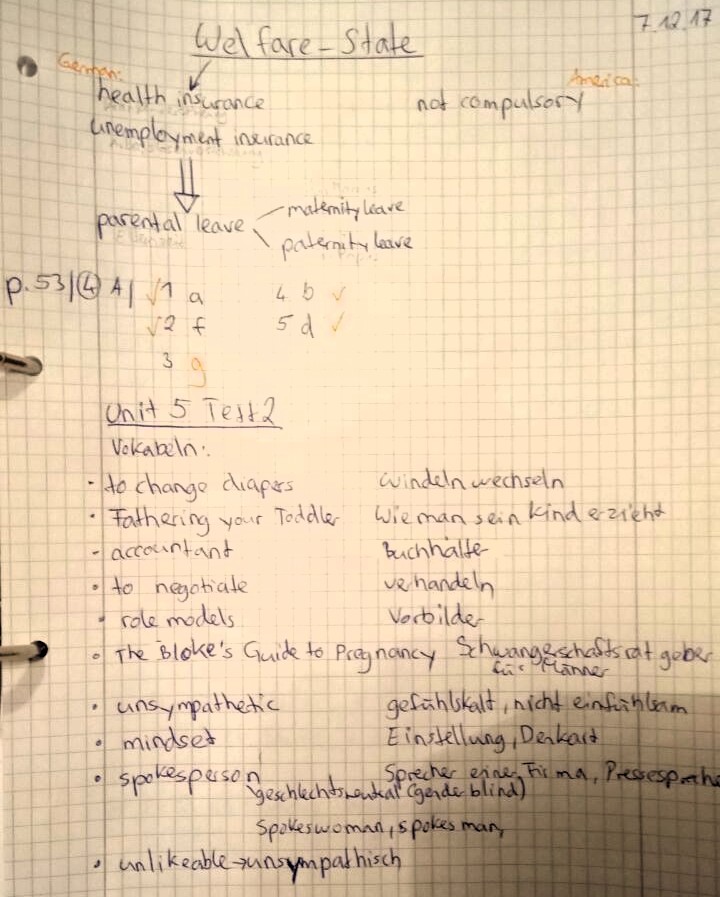 7.12.17
Welfare-State
German: America:
health insurance not compulsory
unemployment insurance
parental leave maternity leave
paternity leave
p. 53/④ A/ √1 a 4 b ✓
√2 f 5 d ✓
3 g
Unit 5 Test 2
Vokabeln:
- to change diapers Windeln wechseln
• Fathering your Toddler Wie man sein Kind erzieht
- accountant Buchhalter
• to negotiate verhandeln
• role models Vorbilder
• The Bloke's Guide to Pregnancy Schwangerschaftsratgeber
für Männer
• unsympathetic gefühlskalt, nicht einfühlsam
• mindset Einstellung, Denkart
• spokesperson Sprecher einer Firma, Pressesprecher
geschlechtsneutral (gender blind)
spokeswoman, spokesman,
• unlikeable → unsympathisch